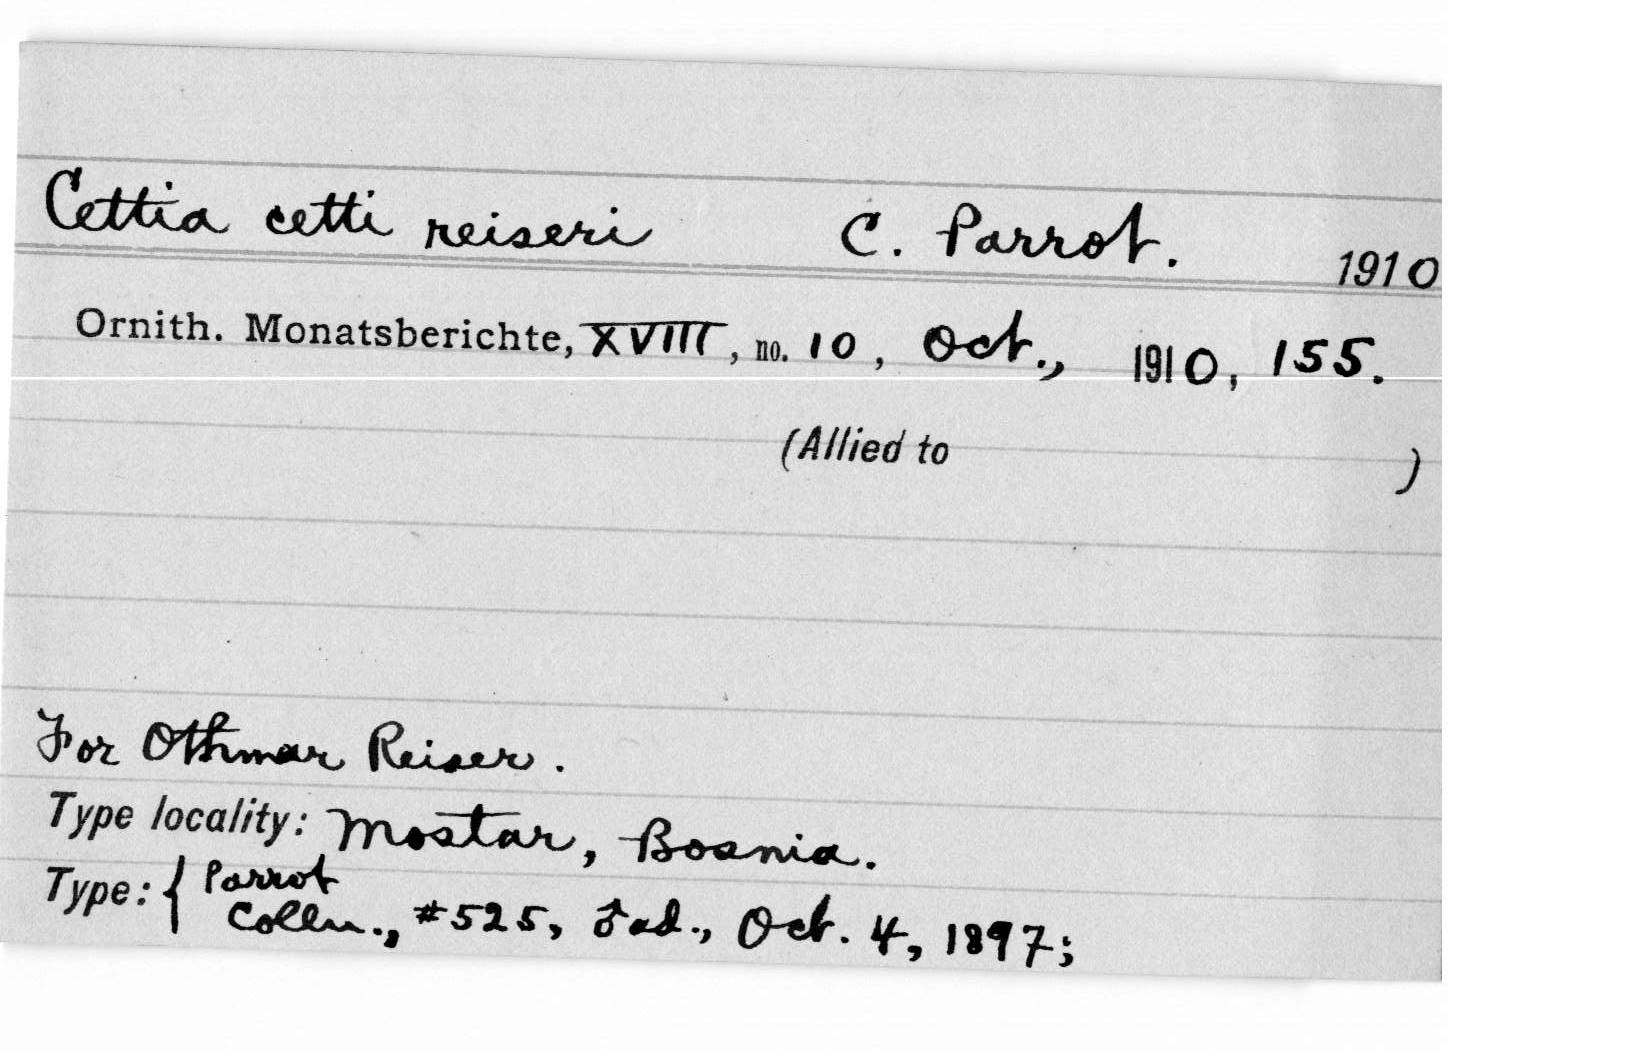 Cettia cetti reiseri C. Parrot. 1910
Ornith. Monatsberichte, XVIII, no. 10, Oct., 1910, 155.
(Allied to )
For Othmar Reiser.
Type locality: Mostar, Bosnia.
Type: { Parrot
Colln., #525, ♂ ad., Oct. 4, 1897;